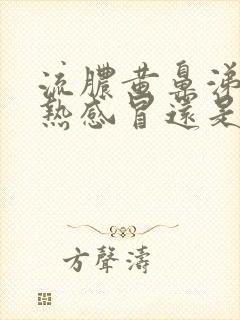 流膿黃鼻涕
熱感冒還是
方聲濤